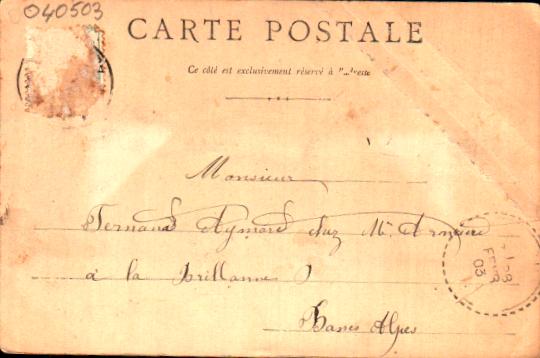 040503
CARTE POSTALE
Ce côté est exclusivement réservé à l'adresse
Monsieur
Fernand Aymard chez Mr
à la Brillanne
Basses Alpes
FEVR
03